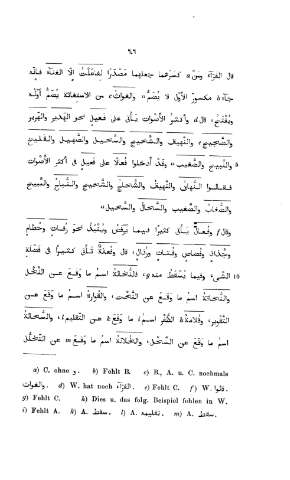 ٦٦
قال الفرّاء ومن كسرهما جعلهما مصدرًا لفاعلت إلّا الغناء فإنّه
جاء مكسور الأوّل لا يضمّ والغواث من الاستغاثة يضمّ أوّله
ويفتح قال وأكثر الأصوات يأتى على فعيل نحو الهدير والهرير
والضجيج والنهيق والشحيج والسحيل والصهيل والقليخ
٥ والنبيح والضغيب وقد أدخلوا فعالا على فعيل فى أكثر الأصوات
فقالوا النهاق والنهيق والشحاج والشحيج والنباح والنبيح
والضغاب والضغيب والسحال والسحيل
وقال وفعال يأتى كثيرًا فيما يرفض وينبذ نحو رفات وحطام
وجذاذ وفضاض وفتات ورذال قال وفعالة تأتى كثيرًا فى فضلة
١٠ الشىء وفيما يسقط منه فالنخالة اسم ما وقع عن النخل
والنحاتة اسم ما وقع عن النحت والقوارة اسم ما وقع عن
التقوير وقلامة الظفر اسم ما وقع عن التقليم والسحالة
اسم ما وقع عن السحل والخلالة اسم ما وقع عن التخلّل
a) C. ohne و. b) Fehlt B. c) B., A. u. C. nochmals
والغواث. d) W. hat noch الفرّاء. e) Fehlt C. f) W. قلوا.
g) Fehlt C. h) Dies u. das folg. Beispiel fehlen in W.
i) Fehlt A. k) A. سقط. l) A. تقليمه. m) A. سقط.